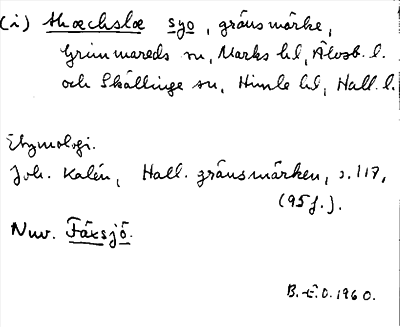 (i) Thæchslæ syo, gränsmärke,
Grimmareds sn, Marks hd, Älvsb. l.
och Skällinge sn, Himle hd, Hall. l.
Etymologi.
Joh. Kalén, Hall. gränsmärken, s. 117,
(95 f.).
Nuv. Fäxsjö.
B. E. O. 1960.